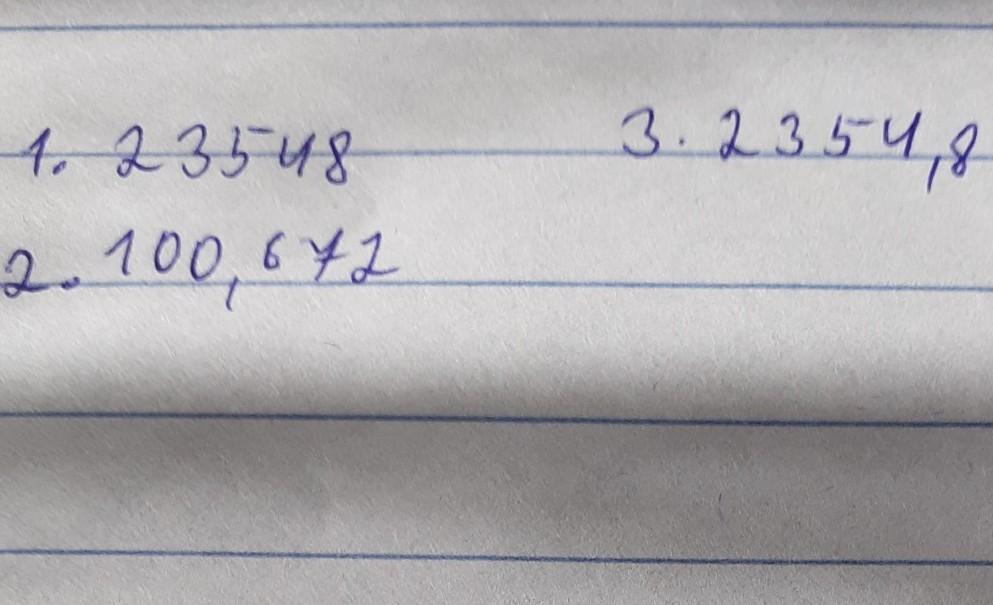 1. 23548
2. 100,672
3. 2354,8